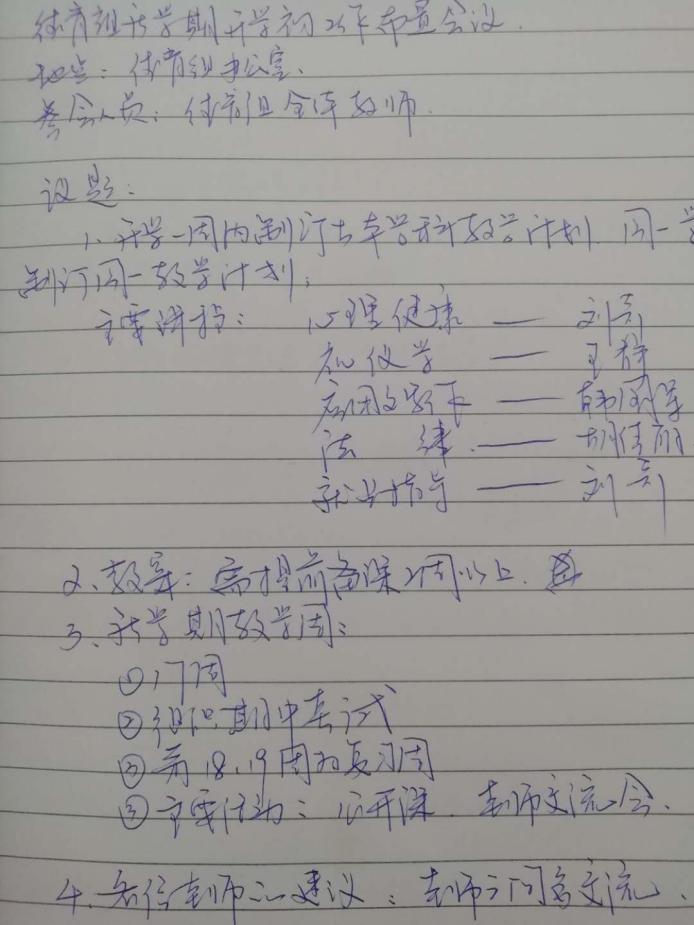 体育组新学期开学初工作布置会议.
地点: 体育组办公室.
参会人员: 体育组全体教师.
议题:
1. 开学一周内制订出本学科教学计划. 同一学
制订同一教学计划;
主要课程: 心理健康 — 刘莉
礼仪学 — 王静
应用文写作 —
法 律 — 胡佳丽
就业指导 — 刘莉
2、教案: 需提前备课2周以上.
3、新学期教学周:
①17周
②组织期中考试
③第18、19周为复习周
③主要活动: 公开课. 老师交流会.
4. 老师 建议: 老师之间多交流.